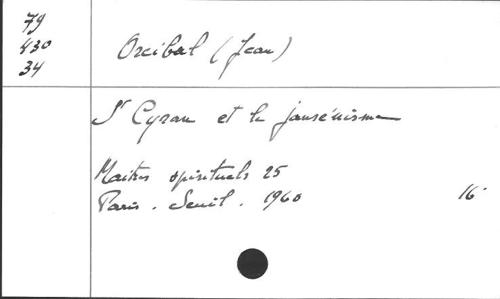 79
430
34
Orcibal (Jean)
St Cyran et le jansénisme
Maitres spirituels 25
Paris. Seuil. 1960 16